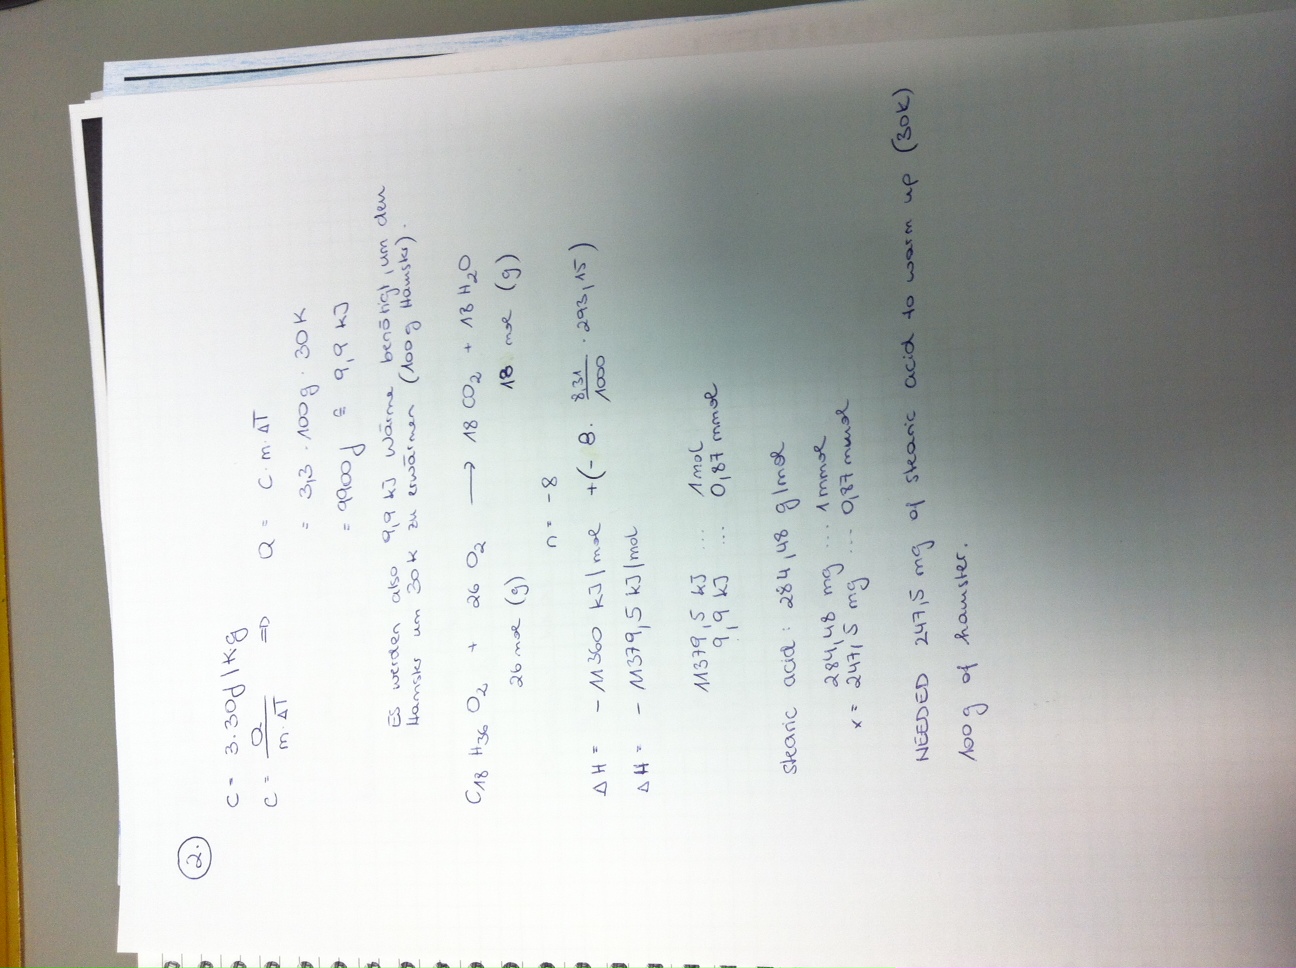 2.
C = 3.30J/Kg
C = Q / m·ΔT ⇒ Q = C·m·ΔT
= 3,3 · 100g · 30K
= 9900J ≙ 9,9 kJ
Es werden also 9,9 kJ Wärme benötigt, um den
Hamster um 30K zu erwärmen (100g Hamster).
C18 H36 O2 + 26 O2 → 18 CO2 + 18 H2O
26 mol (g) 18 mol (g)
n = -8
ΔH = - 11360 kJ/mol + (- 8 · 8,31/1000 · 293,15)
ΔH = - 11379,5 kJ/mol
11379,5 kJ ... 1mol
9,9 kJ ... 0,87 mmol
stearic acid: 284,48 g/mol
284,48 mg ... 1mmol
x = 247,5 mg ... 0,87 mmol
NEEDED 247,5 mg of stearic acid to warm up (30K)
100g of hamster.